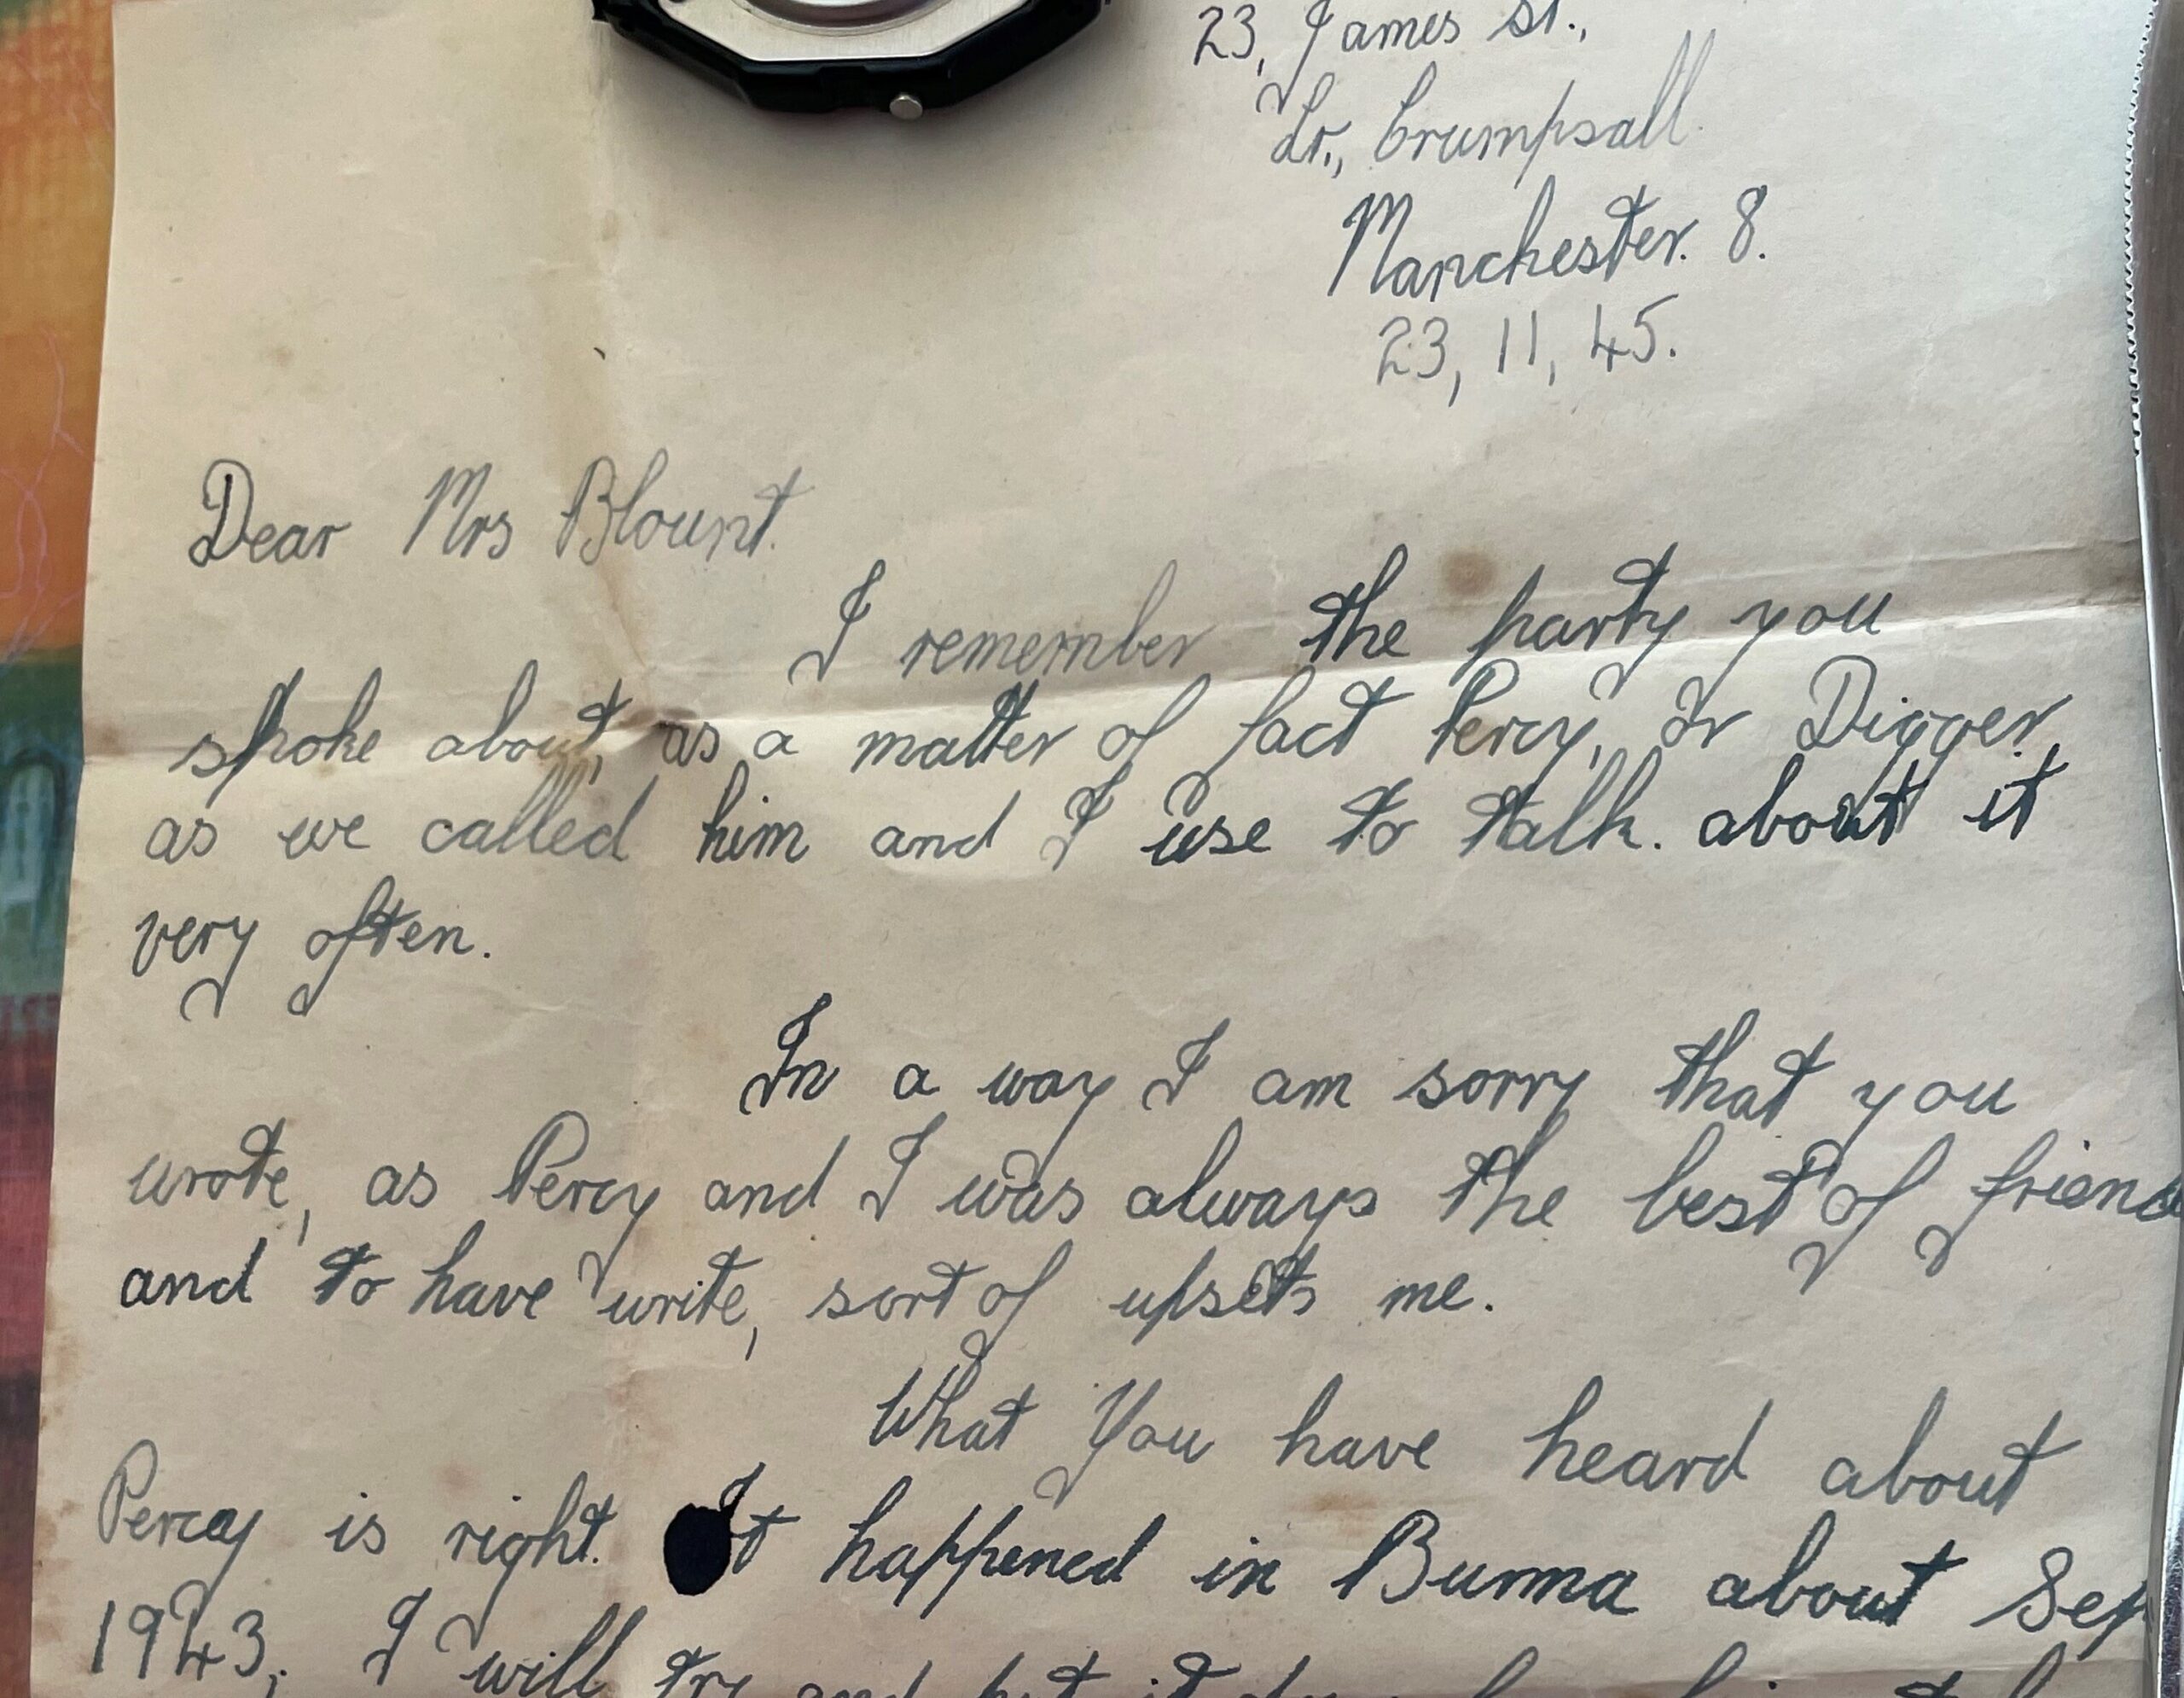 23, James St.,
Lr., Crumpsall.
Manchester. 8.
23, 11, 45.
Dear Mrs Blount.
I remember the party you
spoke about, as a matter of fact Percy, Or Digger,
as we called him and I use to talk. about it
very often.
In a way I am sorry that you
wrote, as Percy and I was always the best of friend
and to have write, sort of upsets me.
What You have heard about
Percy is right. It happened in Burma about Sep
1943, I will try and put it